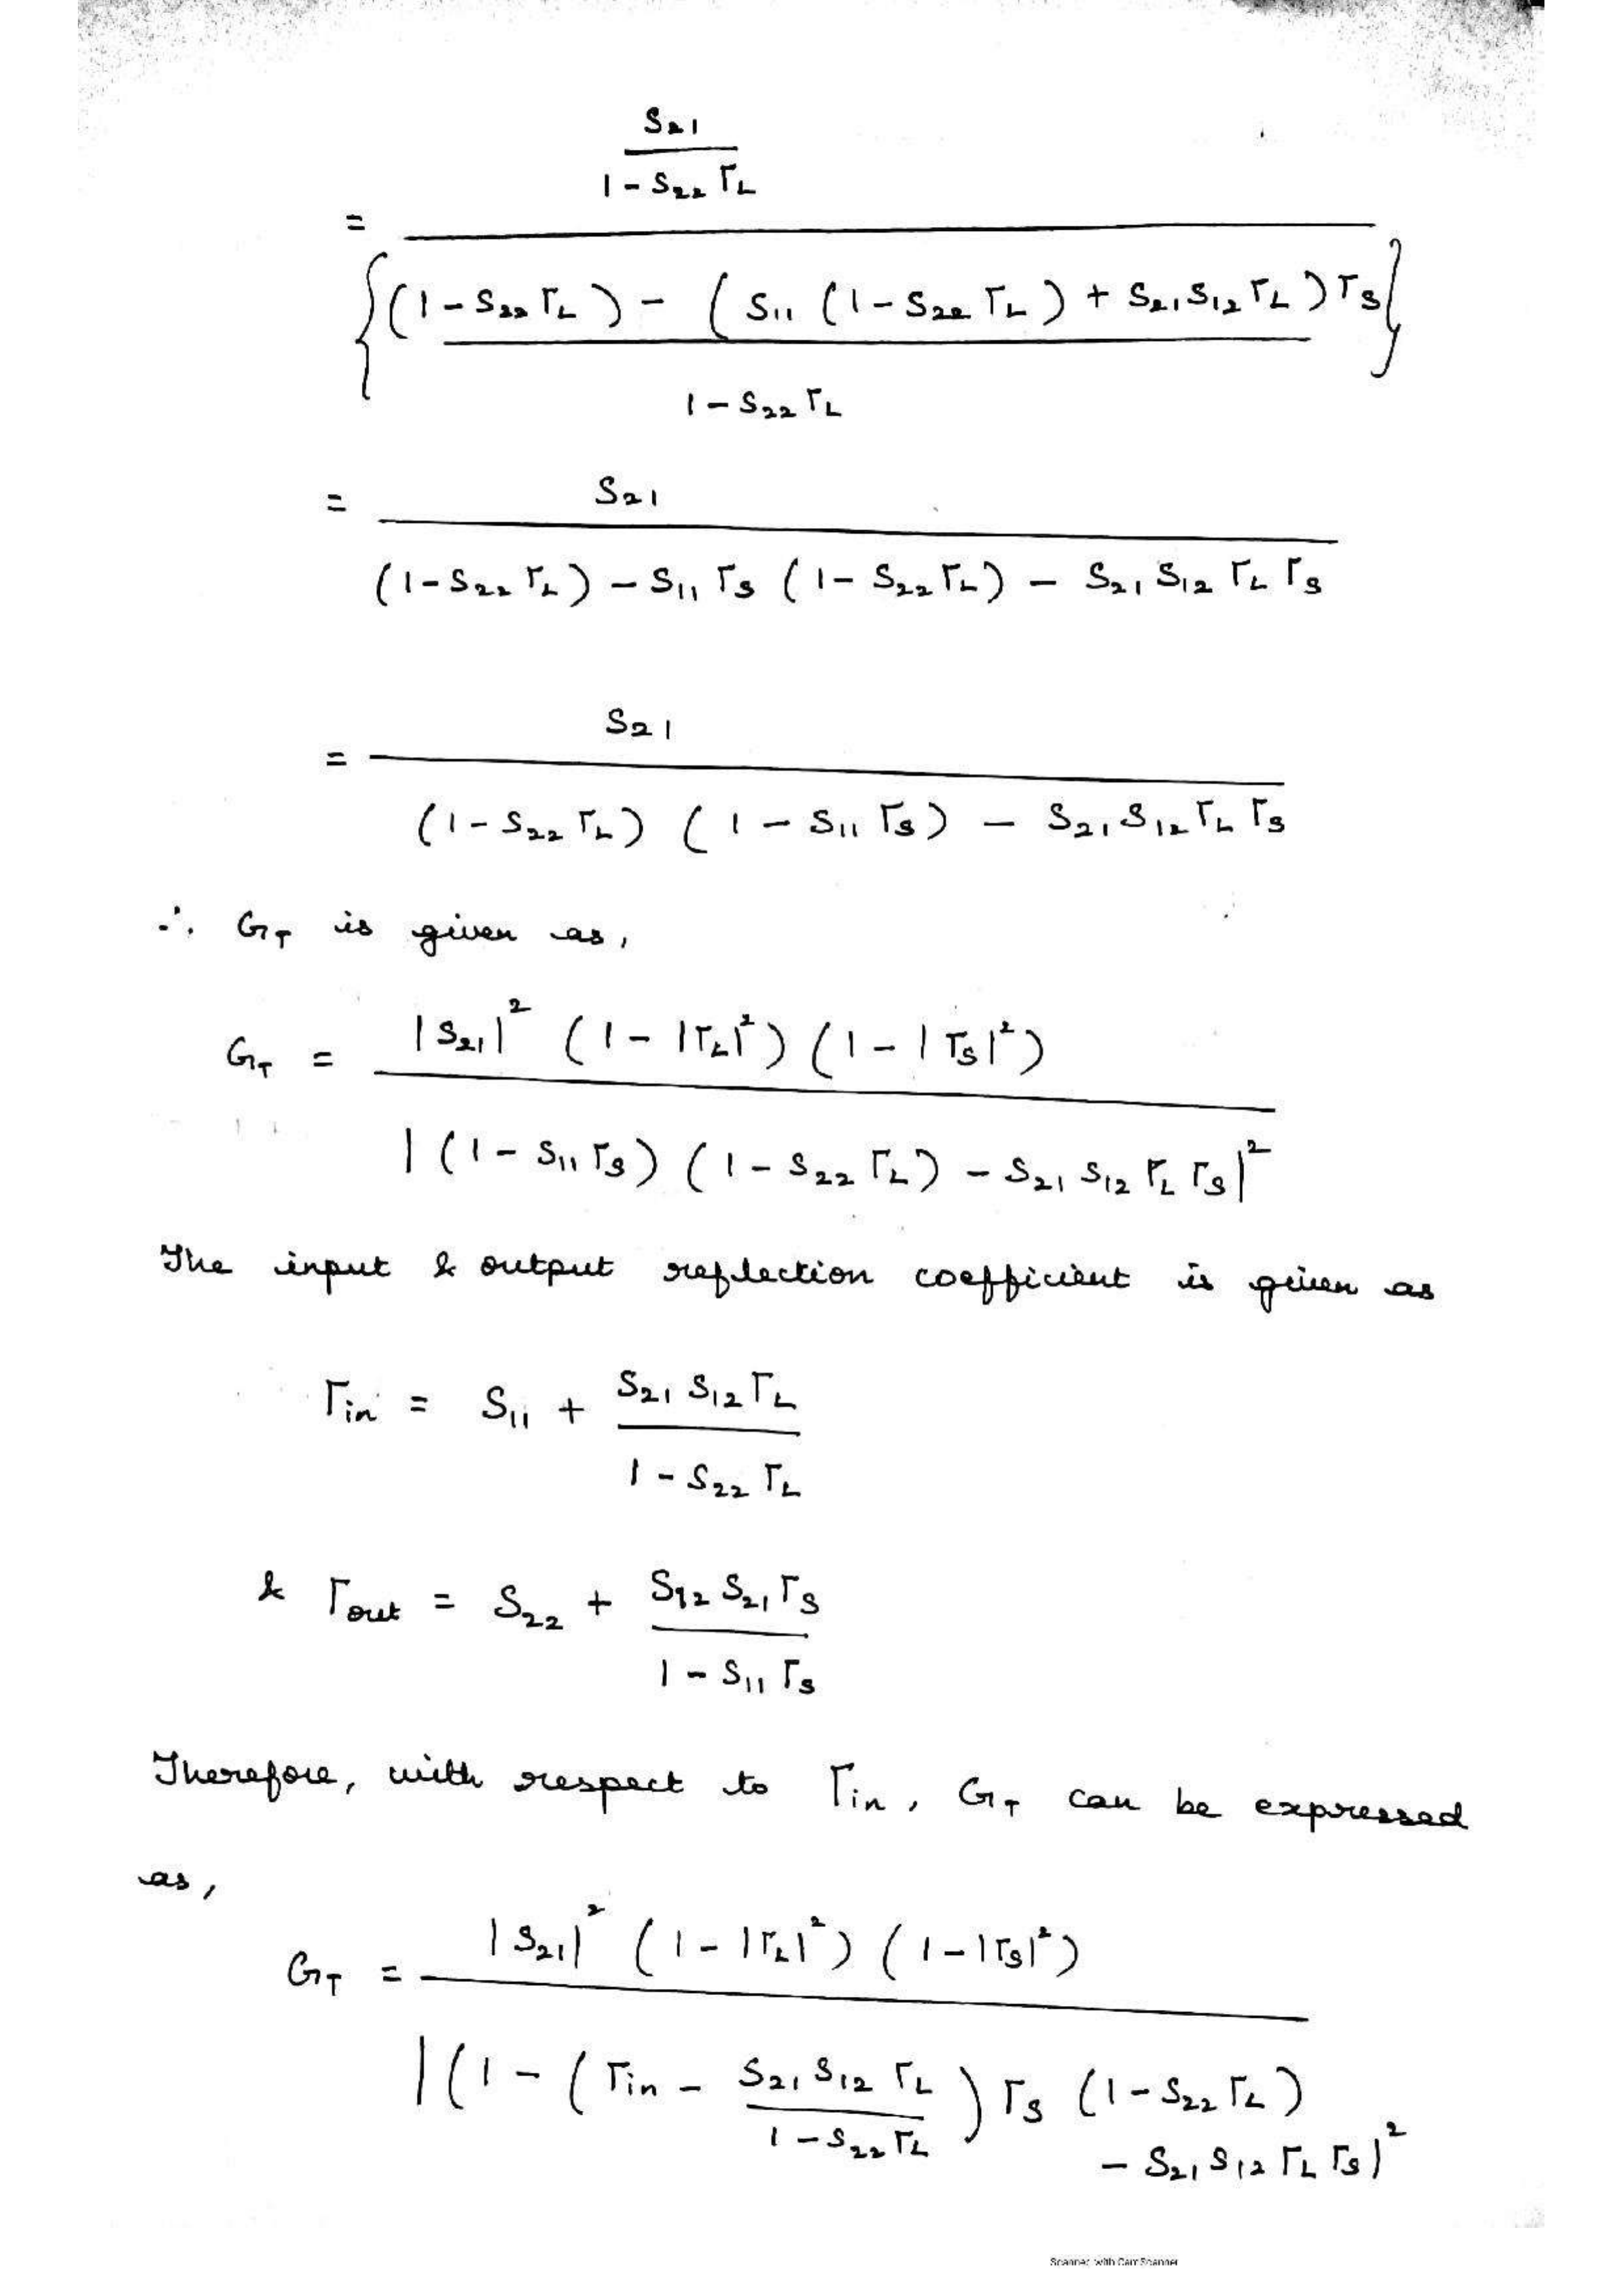 S₂₁
1 - S₂₂ Γ_L
=
{ (1 - S₂₂ Γ_L) - ( S₁₁ (1 - S₂₂ Γ_L) + S₂₁ S₁₂ Γ_L ) Γ_S }
1 - S₂₂ Γ_L
= S₂₁
(1 - S₂₂ Γ_L) - S₁₁ Γ_S (1 - S₂₂ Γ_L) - S₂₁ S₁₂ Γ_L Γ_S
= S₂₁
(1 - S₂₂ Γ_L) (1 - S₁₁ Γ_S) - S₂₁ S₁₂ Γ_L Γ_S
∴ G_T is given as,
G_T = |S₂₁|² (1 - |Γ_L|²) (1 - |Γ_S|²)
| (1 - S₁₁ Γ_S) (1 - S₂₂ Γ_L) - S₂₁ S₁₂ Γ_L Γ_S |²
The input & output reflection coefficient is given as
Γ_in = S₁₁ + S₂₁ S₁₂ Γ_L
1 - S₂₂ Γ_L
& Γ_out = S₂₂ + S₁₂ S₂₁ Γ_S
1 - S₁₁ Γ_S
Therefore, with respect to Γ_in, G_T can be expressed
as,
G_T = |S₂₁|² (1 - |Γ_L|²) (1 - |Γ_S|²)
| (1 - ( Γ_in - S₂₁ S₁₂ Γ_L ) Γ_S (1 - S₂₂ Γ_L)
1 - S₂₂ Γ_L
- S₂₁ S₁₂ Γ_L Γ_S |²
Scanned with CamScanner